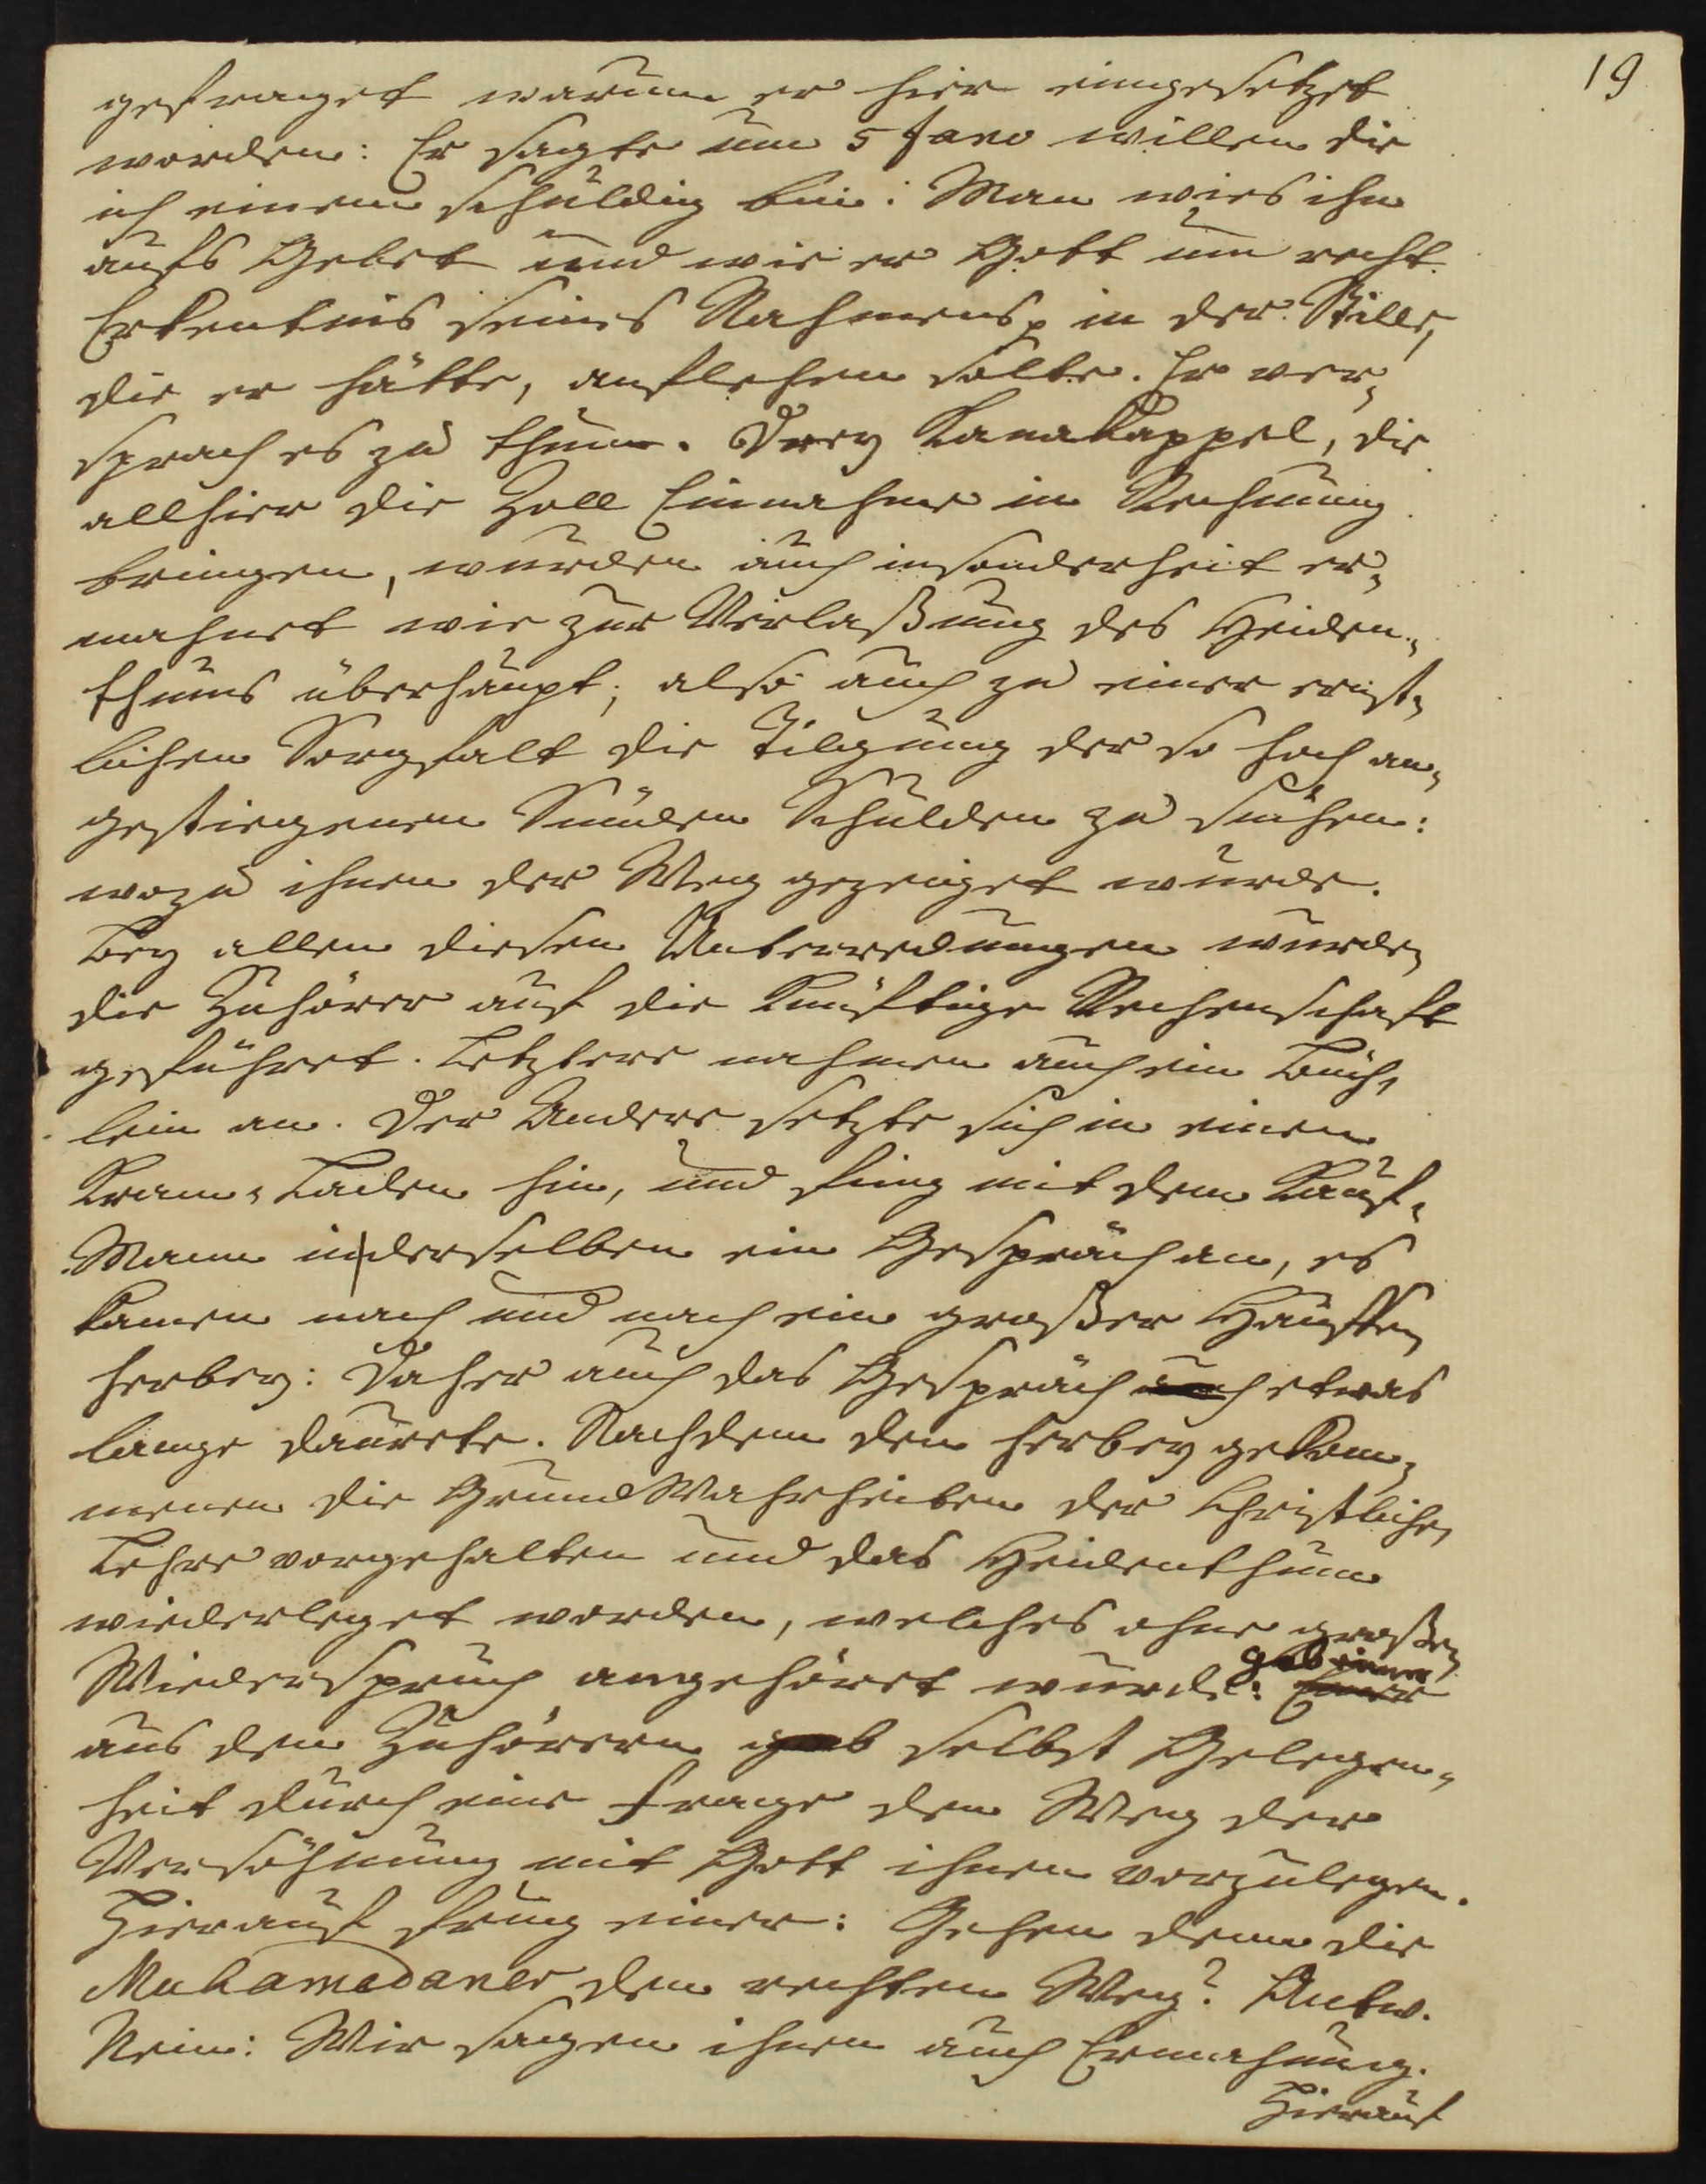 19
gefraget warum er hier eingesetzet
worden: Er sagte um 5 Fano willen die
ich einem schuldig bin: Man wies ihn
aufs Gebet und wie er Gott um recht
Erkentnis seines Nahmens in der Stille,
die er hätte, anflehen solte. Er ver-
sprach es zu thun. Drey Kanakappel, die
allhier die Zoll Einnahme in Rechnung
bringen, wurden auch insonderheit er-
mahnet wie zur Verlaßung des Heiden-
thums überhaupt; also auch zu einer ernst-
lichen Sorgfalt die Tilgung der so hoch an-
gestiegenen Sünden Schulden zu suchen:
wozu ihnen der Weg gezeiget wurde.
Bey allen diesen Unterredungen wurden
die Zuhörer auf die künftige Rechenschaft
geführet. Letztere nahmen auch ein Büch-
lein an. Der Andere setzte sich in einen
Kram-Laden hin, und fing mit dem Kauf-
Mann in derselben ein Gespräch an, es
kamen nach und nach ein großer Hauffen
herbey: Daher auch das Gespräch auch etwas
lange daurete. Nachdem den herbey gekom-
menen die Grund Wahrheiten der Christlichen
Lehre vorgehalten und das Heidenthum
wiederleget worden, welches ohne großen
Wiederspruch angehöret wurde: gab einer Einer
aus den Zuhörern gab selbst Gelegen-
heit durch eine Frage den Weg der
Versöhnung mit Gott ihnen vorzulegen.
Hierauf frug einer: Gehen denn die
Muhamedaner den rechten Weg? Antw.
Nein: Wir sagen ihnen auch Ermahnung.
Hierauf